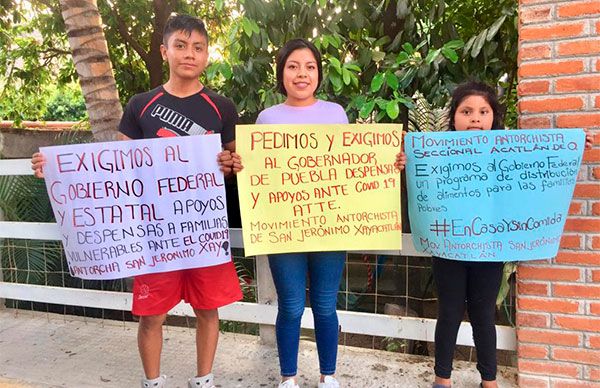 PUMA
EXIGIMOS AL
GOBIERNO FEDERAL
Y ESTATAL APOYOS
Y DESPENSAS A FAMILIAS
VULNERABLES ANTE EL COVID19
ANTORCHA SAN JERONIMO XAY!
PEDIMOS Y EXIGIMOS
AL GOBERNADOR
DE PUEBLA DESPENSAS
Y APOYOS ANTE COVID 19
ATTE.
MOVIMIENTO ANTORCHISTA
DE SAN JERÓNIMO XAYACATLÁN
MOVIMIENTO ANTORCHISTA
SECCIONAL ACATLÁN DE O.
Exigimos al Gobierno Federal
un programa de distribución
de alimentos para las familias
Pobres
#EnCasaYSinComida
MOV ANTORCHISTA SAN JERÓNIMO
XAYACATLÁN